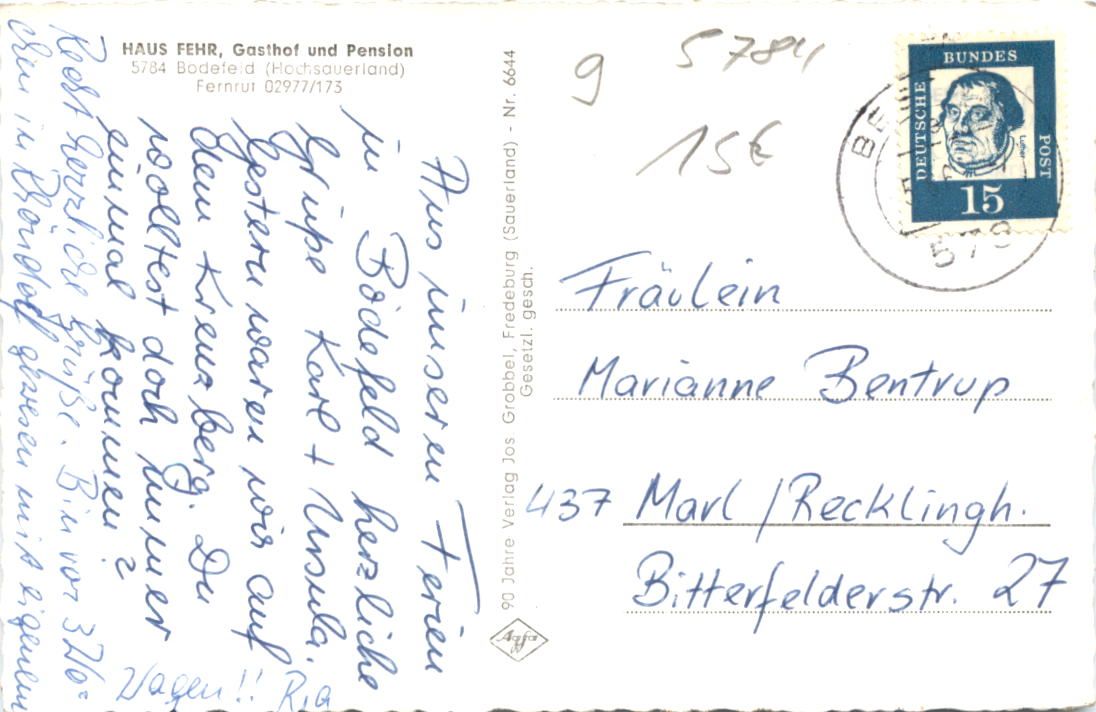 HAUS FEHR, Gasthof und Pension
5784 Bödefeld (Hochsauerland)
Fernruf 02977/173
Aus unseren Ferien
in Bödefeld herzliche
Grüße Karl + Ursula.
Gestern waren wir auf
dem Kreuzberg. Du
wolltest doch immer
einmal kommen?
Recht herzliche Grüße. Bin vor 3 Wo=
chen in gewesen mit eigenem
Wagen!! Ria
90 Jahre Verlag Jos Grobbel, Fredeburg (Sauerland) - Nr. 6644
Gesetzl. gesch.
Agfa
9 5784
15€
DEUTSCHE
BUNDES
POST
Luther
15
578
Fräulein
Marianne Bentrup
437 Marl / Recklingh.
Bitterfelderstr. 27